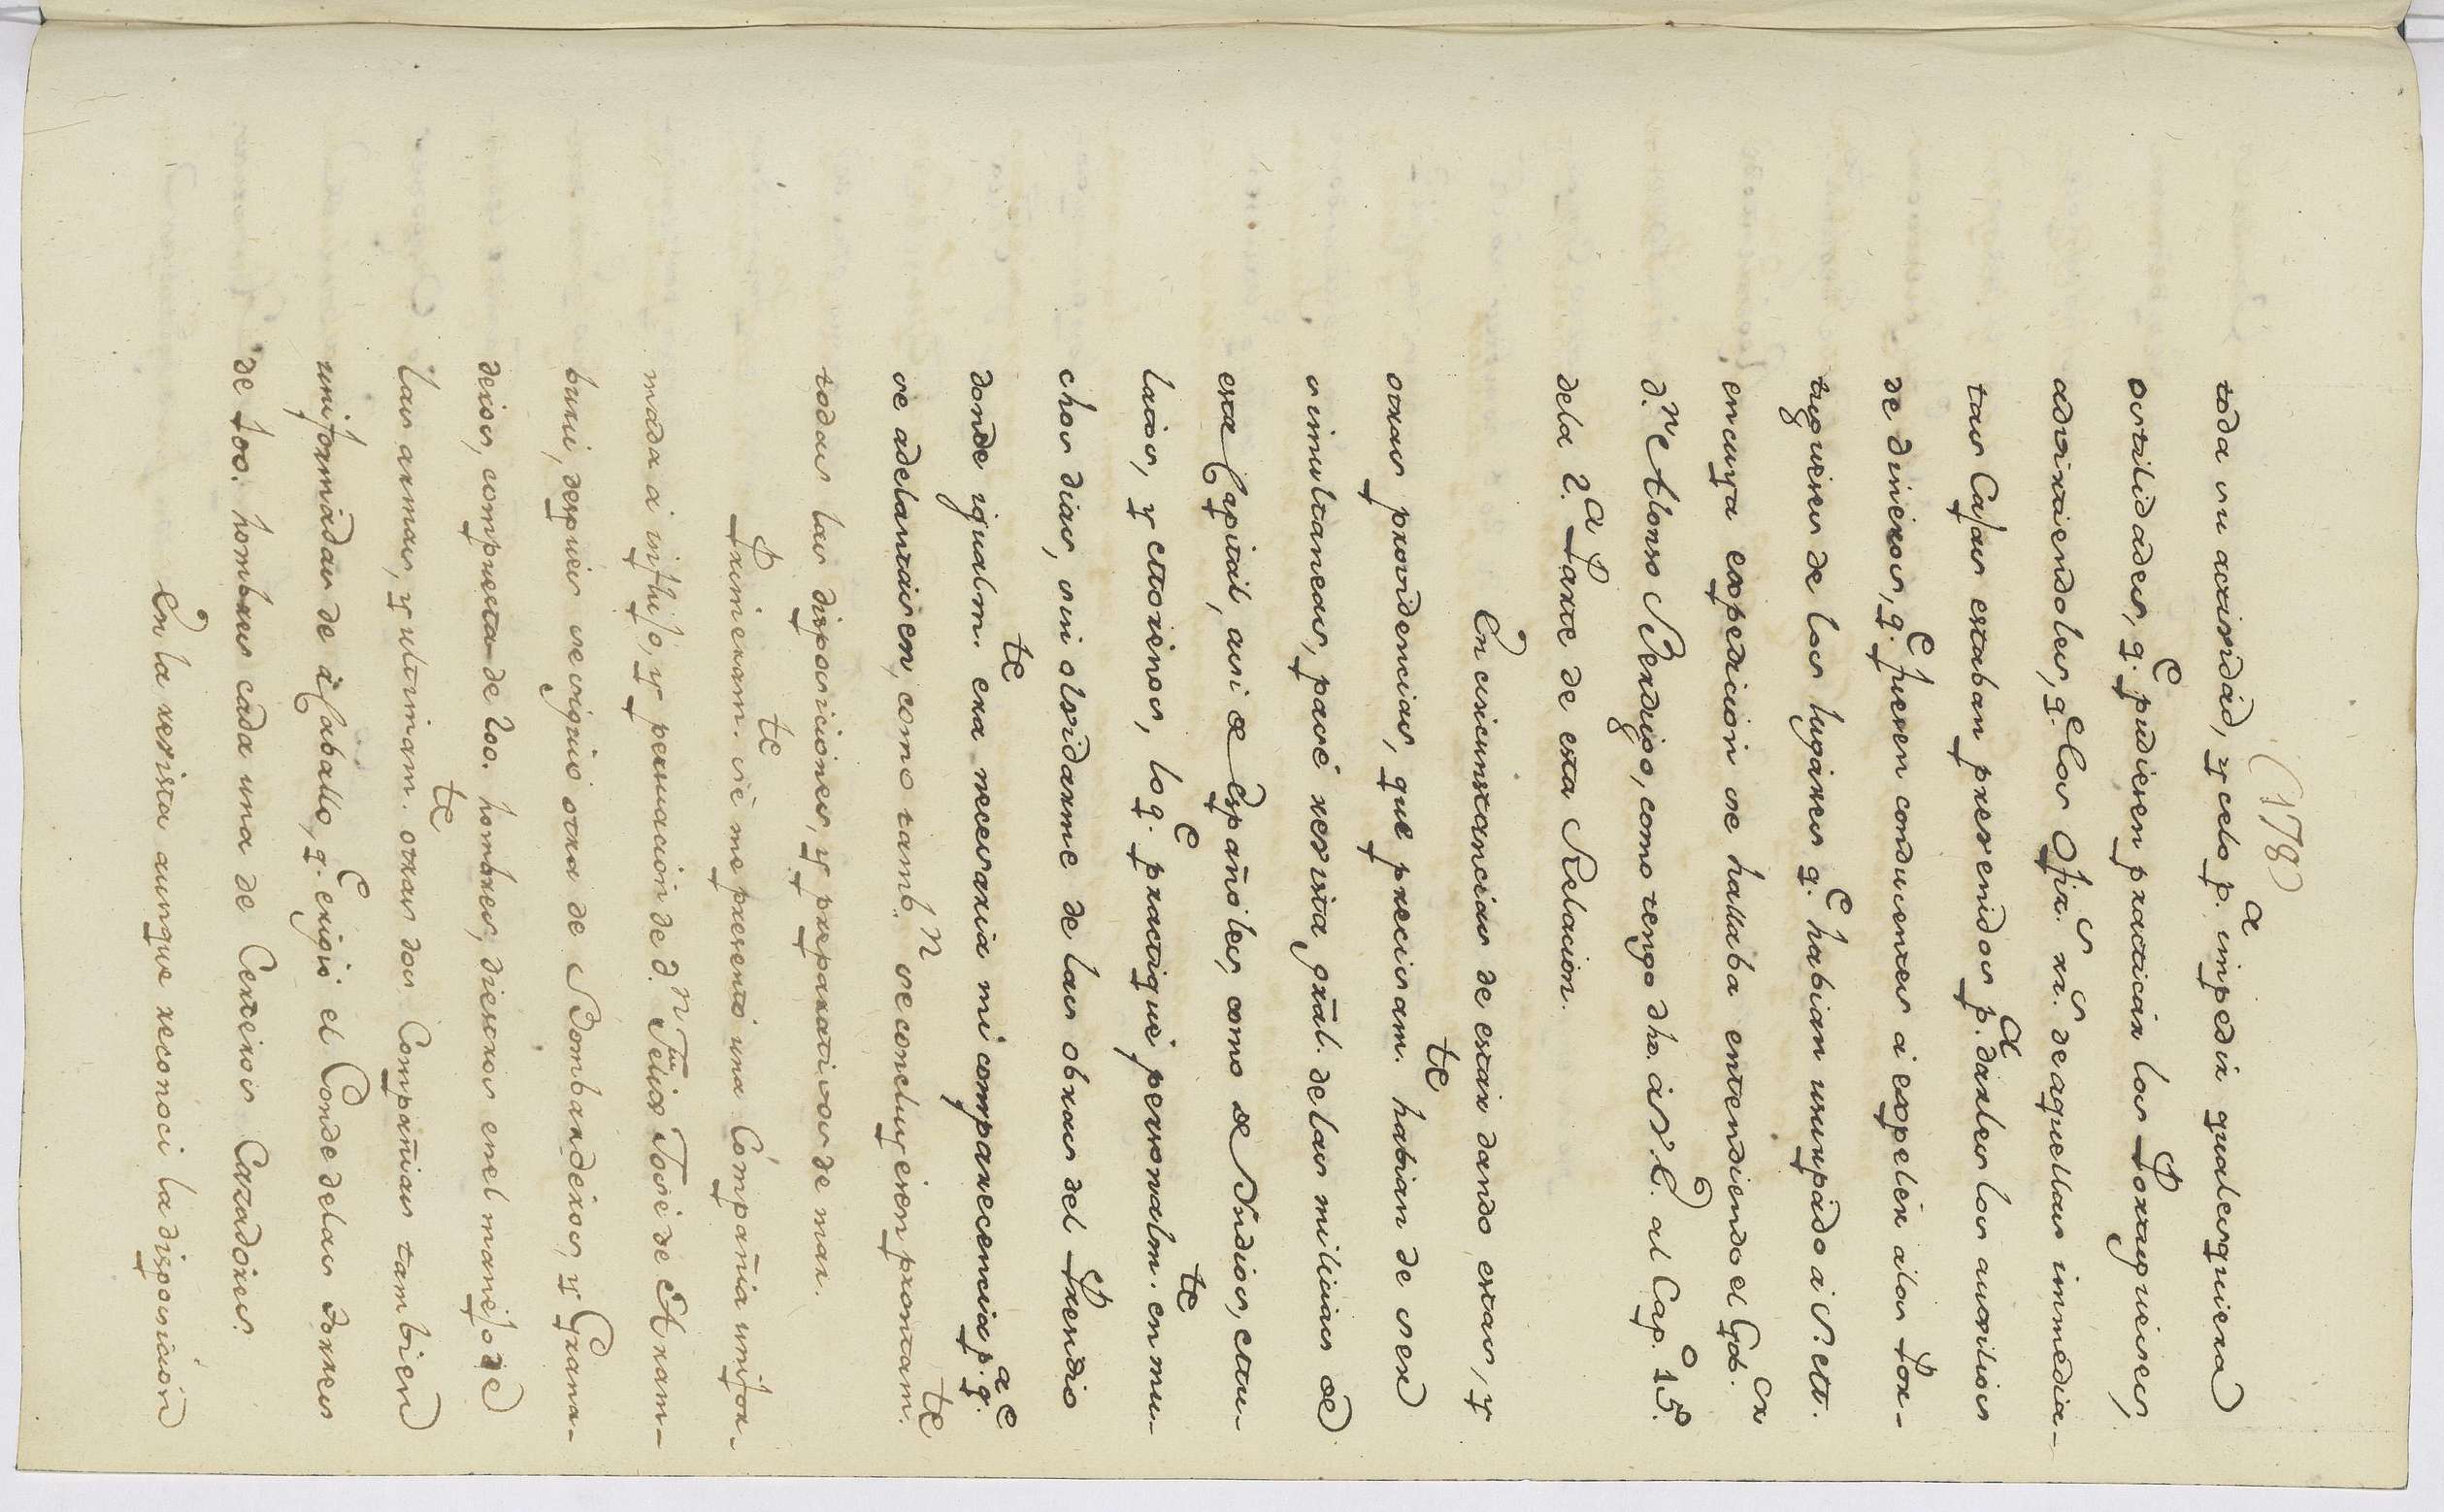 (178)
toda su actividad, y celo p.ª impedir qualesquiera
ostilidades, q.e pudiesen practicar los Portugueses,
advirtiendoles, q.e los Ofiz.s R.s de aquellas immedia-
tas Casas estaban prevenidos p.ª darles los ausilios
de dineros, q.e fuesen conducentes à expeler à los Por-
tugueses de los lugares q.e habian usurpado à S. M.
en cuya expedicion se hallaba entendiendo el Gob.or
d.n Alonso Berdugo, como tengo dho. à V. E. al Cap.o 15.
dela 2.ª Parte de esta Relacion.
En circunstancias de estar dando estas, y
otras providencias, que precisam.te habian de ser
simultaneas, pasé revista gral. delas milicias de
esta Capital, asi de Españoles, como de Yndios, Mu-
latos, y Morenos, lo q.e practiquè personalm.te en mu-
chos dias, sin olvidarme de las obras del Presidio
donde igualm.te era necesaria mi comparecencia p.ª q.e
se adelantasen, como tamb.n se concluyesen prontam.te
todas las disposiciones, y preparativos de mar.
Primeram.te sè me presentò una Compañia unifor-
mada à influjo, y persuacion de d.n Felix Josè de Aram-
buru, despues se siguiò otra de Bombarderos, y Grana-
deros, compuesta de 200. hombres, diestros enel manejo de
las armas, y ultimam.te otras dos Compañias tambien
uniformadas de à Caballo, q.e erigiò el Conde delas torres
de 100. hombres cada una de Certeros Cazadores.
En la revista aunque reconoci la disposicion